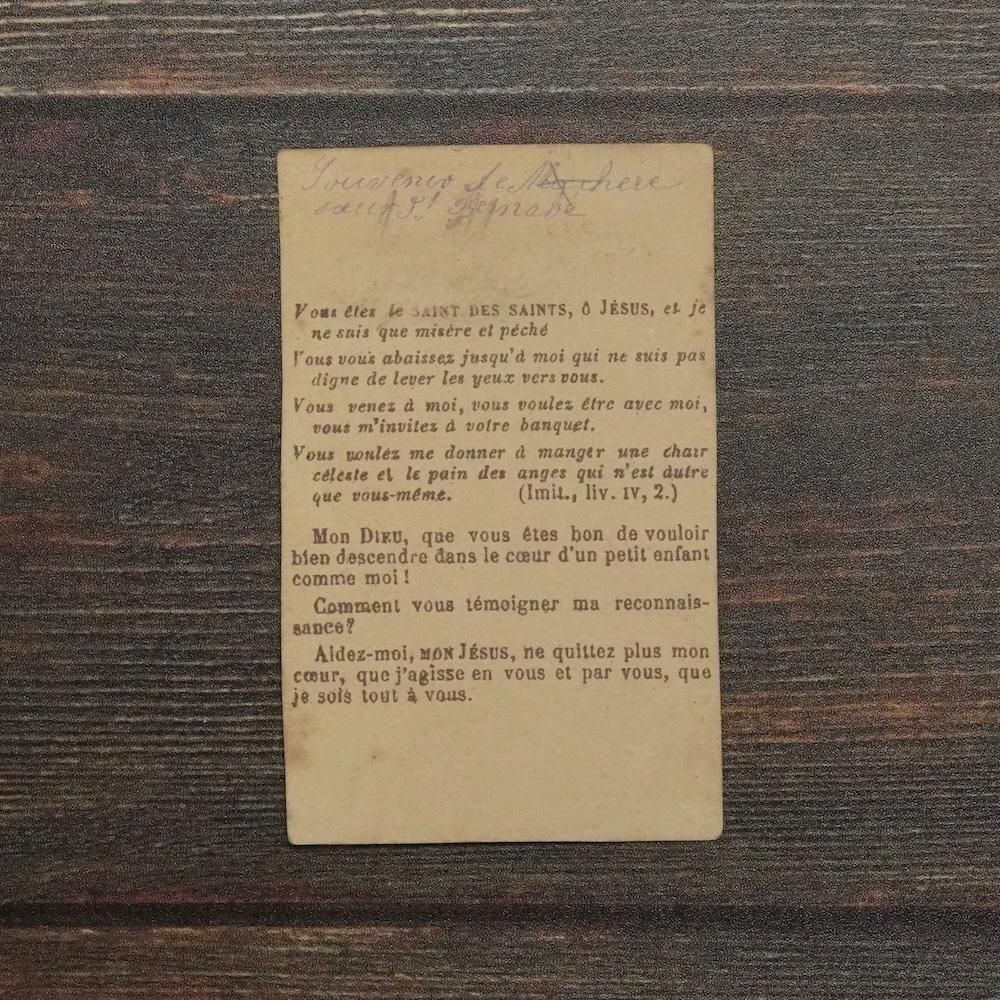 Souvenir de Ma chère
sœur St Bernabé
Vous êtes le SAINT DES SAINTS, Ô JÉSUS, et je
ne suis que misère et péché
Vous vous abaissez jusqu'à moi qui ne suis pas
digne de lever les yeux vers vous.
Vous venez à moi, vous voulez être avec moi,
vous m'invitez à votre banquet.
Vous voulez me donner à manger une chair
céleste et le pain des anges qui n'est autre
que vous-même. (Imit., liv. IV, 2.)
MON DIEU, que vous êtes bon de vouloir
bien descendre dans le cœur d'un petit enfant
comme moi !
Comment vous témoigner ma reconnais-
sance?
Aidez-moi, MON JÉSUS, ne quittez plus mon
cœur, que j'agisse en vous et par vous, que
je sois tout à vous.